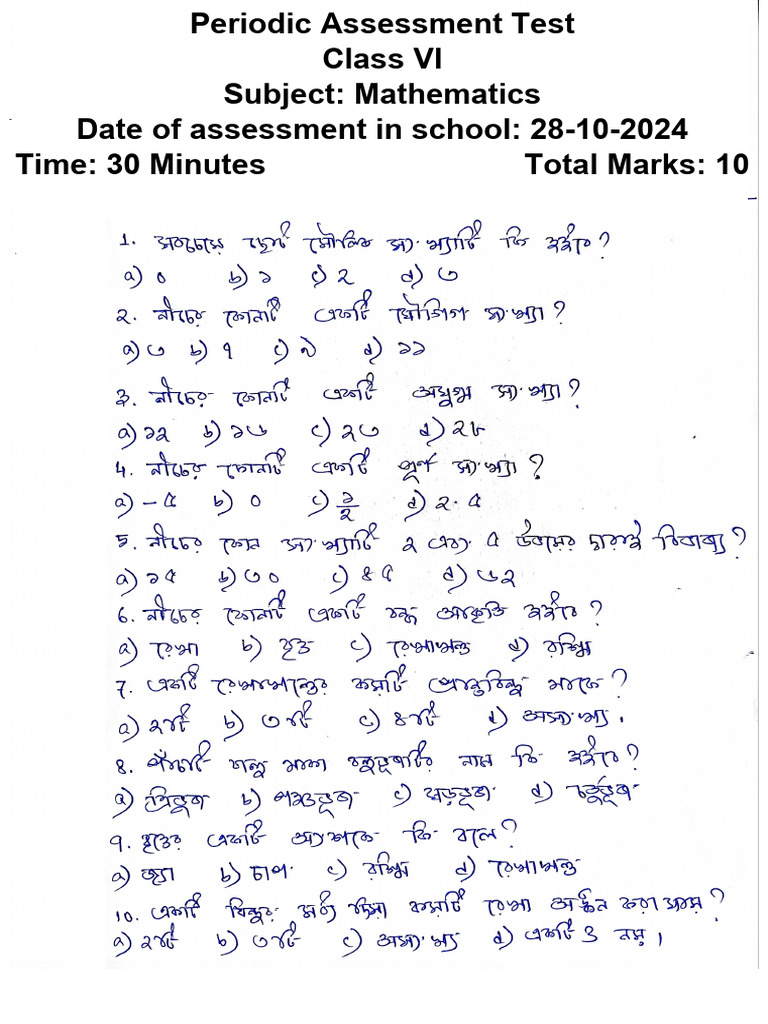 Periodic Assessment Test
Class VI
Subject: Mathematics
Date of assessment in school: 28-10-2024
Time: 30 Minutes Total Marks: 10
1. সবচেয়ে ছোট মৌলিক সংখ্যাটি কি হইবে?
a) ০ b) ১ c) ২ d) ৩
২. নীচের কোনটি একটি যৌগিগ সংখ্যা?
a) ৩ b) ৭ c) ৯ d) ১১
৩. নীচের কোনটি একটি অযুগ্ম সংখ্যা?
a) ১২ b) ১৬ c) ২৩ d) ২৮
4. নীচের কোনটি একটি পূর্ণ সংখ্যা?
a) -৫ b) ০ c) ১/২ d) ২.৫
5. নীচের কোন সংখ্যাটি ২ এবং ৫ উভয়ের দ্বারাই বিভাজ্য?
a) ১৫ b) ৩০ c) ৪৫ d) ৬২
6. নীচের কোনটি একটি বদ্ধ আকৃতি হইবে?
a) রেখা b) বৃত্ত c) রেখাখন্ড d) রশ্মি
7. একটি রেখাখন্ডের কয়টি প্রান্তবিন্দু থাকে?
a) ২টি b) ৩টি c) ৪টি d) অসংখ্য।
8. পাঁচটি বাহু থাকা বহুভূজটির নাম কি হইবে?
a) ত্রিভূজ b) পঞ্চভূজ c) ষড়ভূজ d) চতুর্ভূজ
9. বৃত্তের একটি অংশকে কি বলে?
a) জ্যা b) চাপ c) রশ্মি d) রেখাখন্ড
10. একটি বিন্দুর মধ্য দিয়া কয়টি রেখা অঙ্কন করা যায়?
a) ২টি b) ৩টি c) অসংখ্য d) একটি ও নয়।